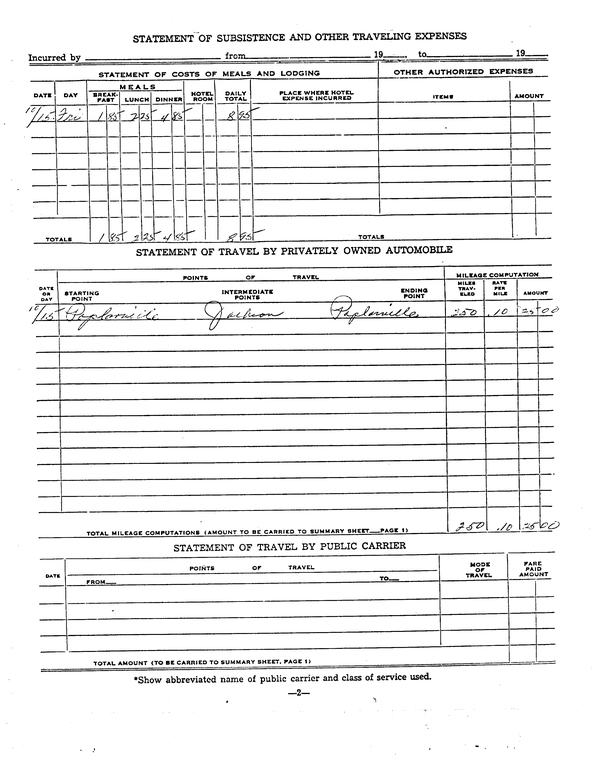 STATEMENT OF SUBSISTENCE AND OTHER TRAVELING EXPENSES
Incurred by from 19 to 19
STATEMENT OF COSTS OF MEALS AND LODGING OTHER AUTHORIZED EXPENSES
DATE DAY MEALS HOTEL ROOM DAILY TOTAL PLACE WHERE HOTEL EXPENSE INCURRED ITEMS AMOUNT
BREAK-FAST LUNCH DINNER
10/15 Fri 1 85 2 25 4 85 8 95
TOTALS 1 85 2 25 4 85 8 95 TOTALS
STATEMENT OF TRAVEL BY PRIVATELY OWNED AUTOMOBILE
POINTS OF TRAVEL MILEAGE COMPUTATION
DATE OR DAY STARTING POINT INTERMEDIATE POINTS ENDING POINT MILES TRAV-ELED RATE PER MILE AMOUNT
10/15 Poplarville Jackson Poplarville 250 .10 25 00
TOTAL MILEAGE COMPUTATIONS (AMOUNT TO BE CARRIED TO SUMMARY SHEET—PAGE 1) 250 .10 25 00
STATEMENT OF TRAVEL BY PUBLIC CARRIER
DATE POINTS OF TRAVEL MODE OF TRAVEL FARE PAID AMOUNT
FROM— TO—
TOTAL AMOUNT (TO BE CARRIED TO SUMMARY SHEET, PAGE 1)
*Show abbreviated name of public carrier and class of service used.
—2—